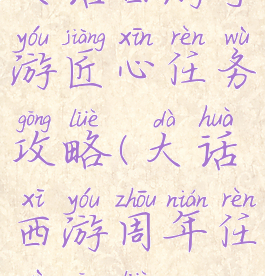 yóu jiàng xīn rèn wù
游匠心任务
gōng lüè dà huà
攻略(大话
xī yóu zhōu nián rèn
西游周年任